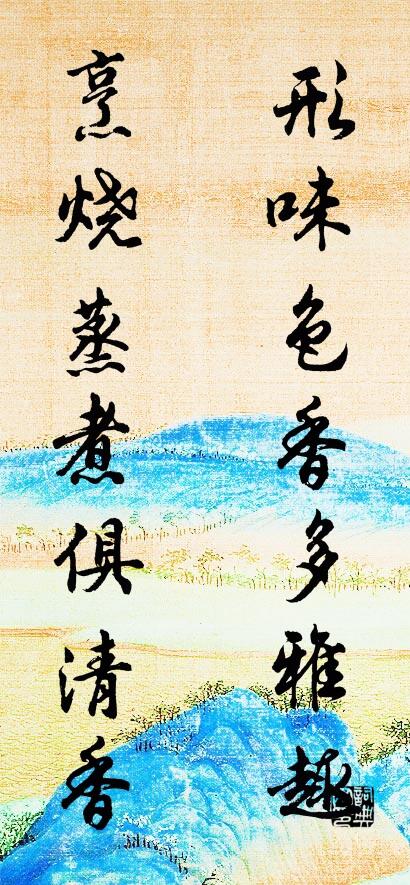 形味色香多雅趣
烹烧蒸煮俱清香